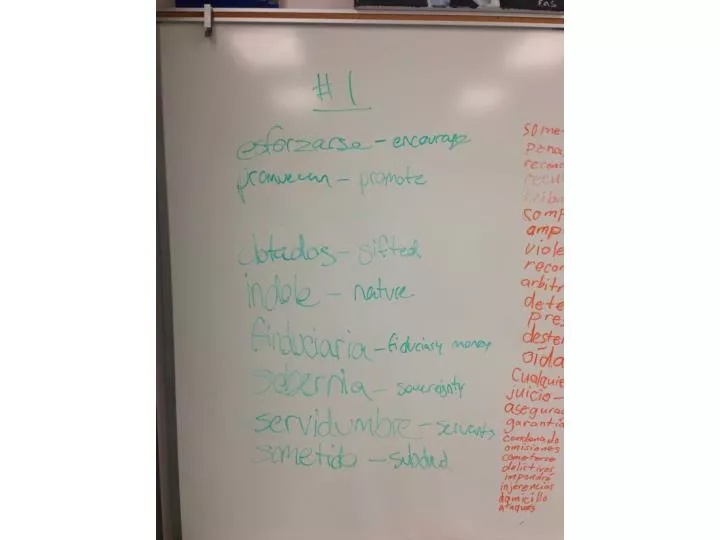 #1
esforzarse - encourage
promueven - promote
dotados - gifted
indole - nature
finduciaria - fiduciary money
sobernia - sovereignty
servidumbre - servants
sometido - subdud
some
pena
recono
recu
comp
amp
viole
recor
arbitr
dete
pres
dester
oída
Cualquie
juicio -
asegurad
garantía
condenado
omisiones
cometerse
delictivos
impondrá
injerencias
domicilio
ataques